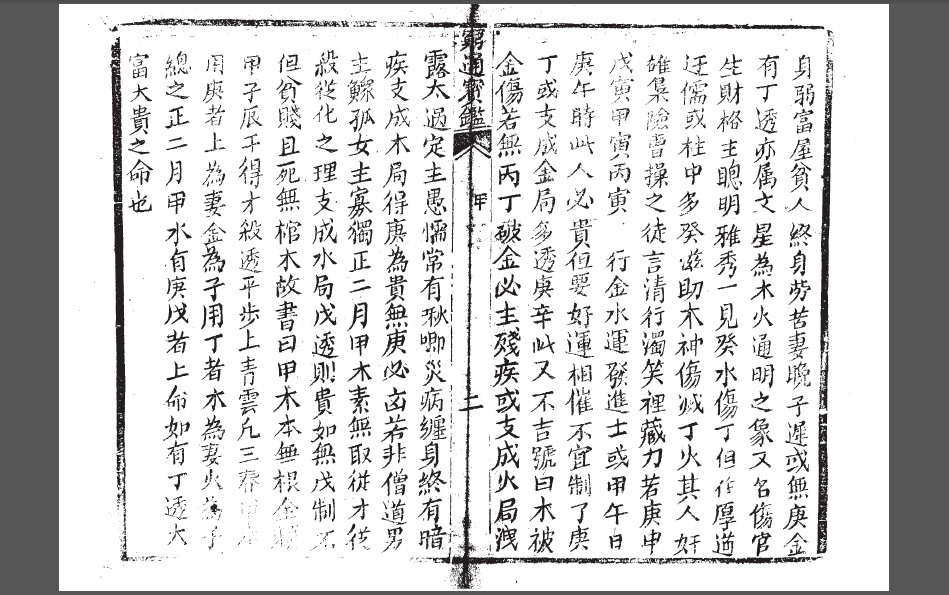 身弱富屋貧人終身勞苦妻晚子遲或無庚金
有丁透亦属文星為木火通明之象又名傷官
生財格主聰明雅秀一見癸水傷丁但作厚道
迂儒或柱中多癸滋助木神傷滅丁火其人奸
雄梟險曹操之徒言清行濁笑裡藏力若庚申
戊寅甲寅丙寅 行金水運發進士或甲午日
庚午時此人必貴但要好運相催不宜制了庚
丁或支成金局多透庚辛此又不吉號曰木被
金傷若無丙丁破金必主殘疾或支成火局洩
窮通寶鑑 甲 二
露太過定主愚懦常有秋唧災病纏身終有暗
疾支成木局得庚為貴無庚必凶若非僧道男
主鰥孤女主寡獨正二月甲木素無取從才從
殺從化之理支成水局戊透則貴如無戊制不
但貧賤且死無棺木故書曰甲木本無根金
甲子辰干得才殺透平步上青雲凡三春甲木
用庚者上為妻金為子用丁者木為妻火為子
總之正二月甲水有庚戊者上命如有丁透大
富大貴之命也